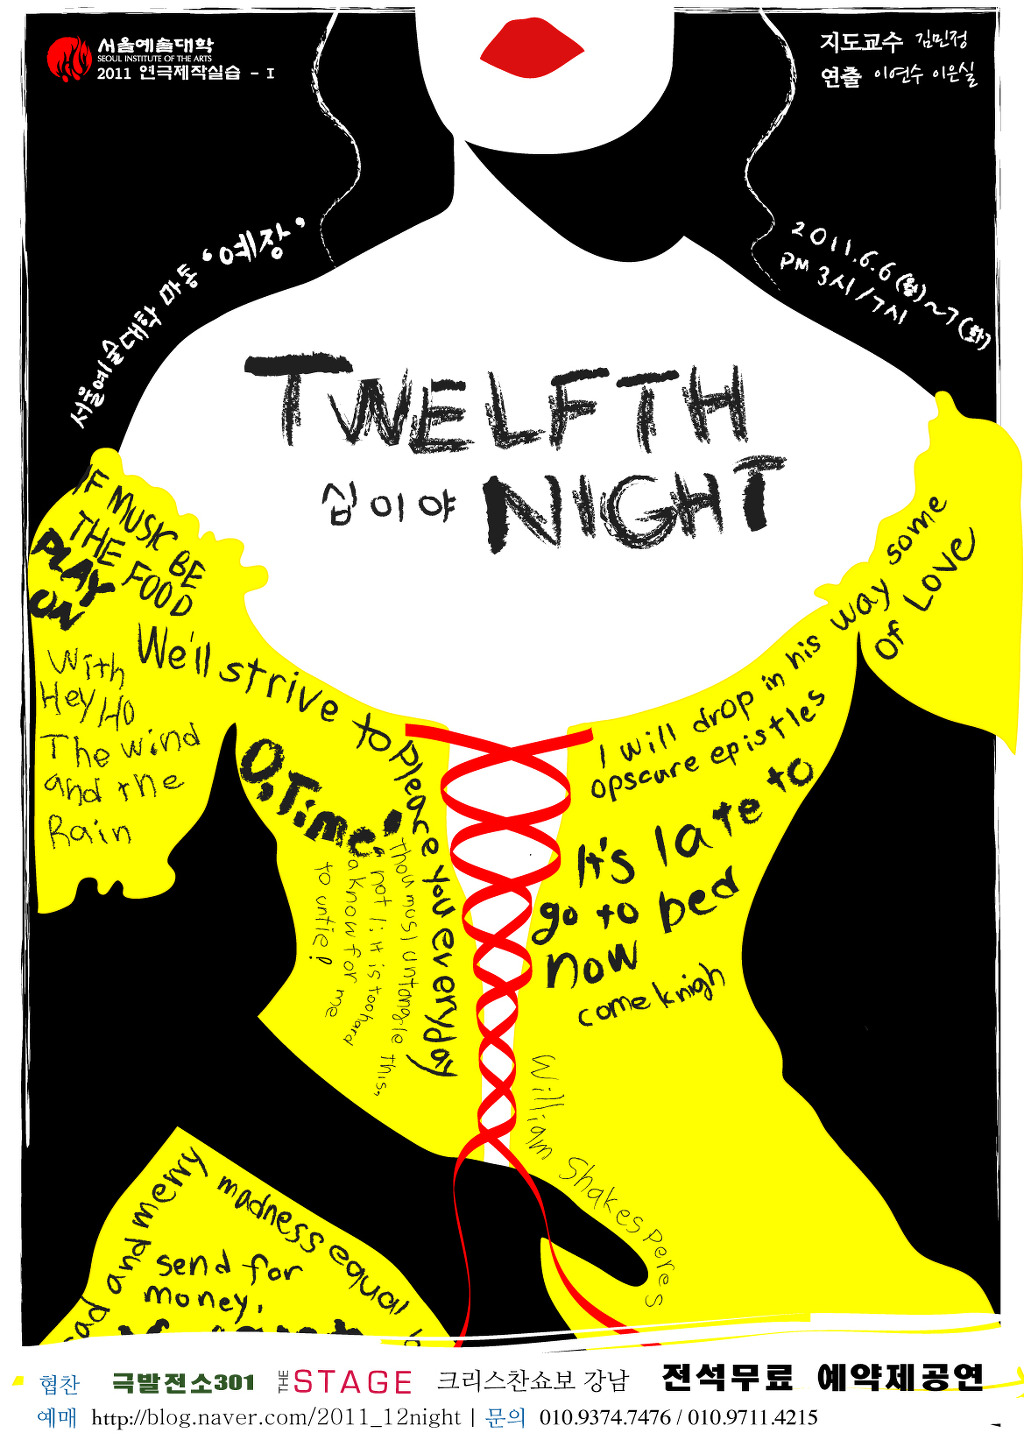 서울예술대학
SEOUL INSTITUTE OF THE ARTS
2011 연극제작실습 - I
지도교수 김민정
연출 이연수 이은실
서울예술대학 마동 '예장'
2011.6.6(월)~7(화)
PM 3시/7시
TWELFTH
십이야 NIGHT
IF MUSIC BE
THE FOOD
PLAY
ON
With
Hey Ho
The wind
and the
Rain
We'll strive to pleace you everyday
O, Time!
Thou must untangle this,
not I: it is too hard
a know for me
to untie!
I will drop in his way some
opscure epistles
of Love
It's late to
go to bed
now
come knigh
William Shakesperes
sad and merry
madness equal
send for
money,
협찬 극발전소301 THE STAGE 크리스찬쇼보 강남 전석무료 예약제공연
예매 http://blog.naver.com/2011_12night | 문의 010.9374.7476 / 010.9711.4215